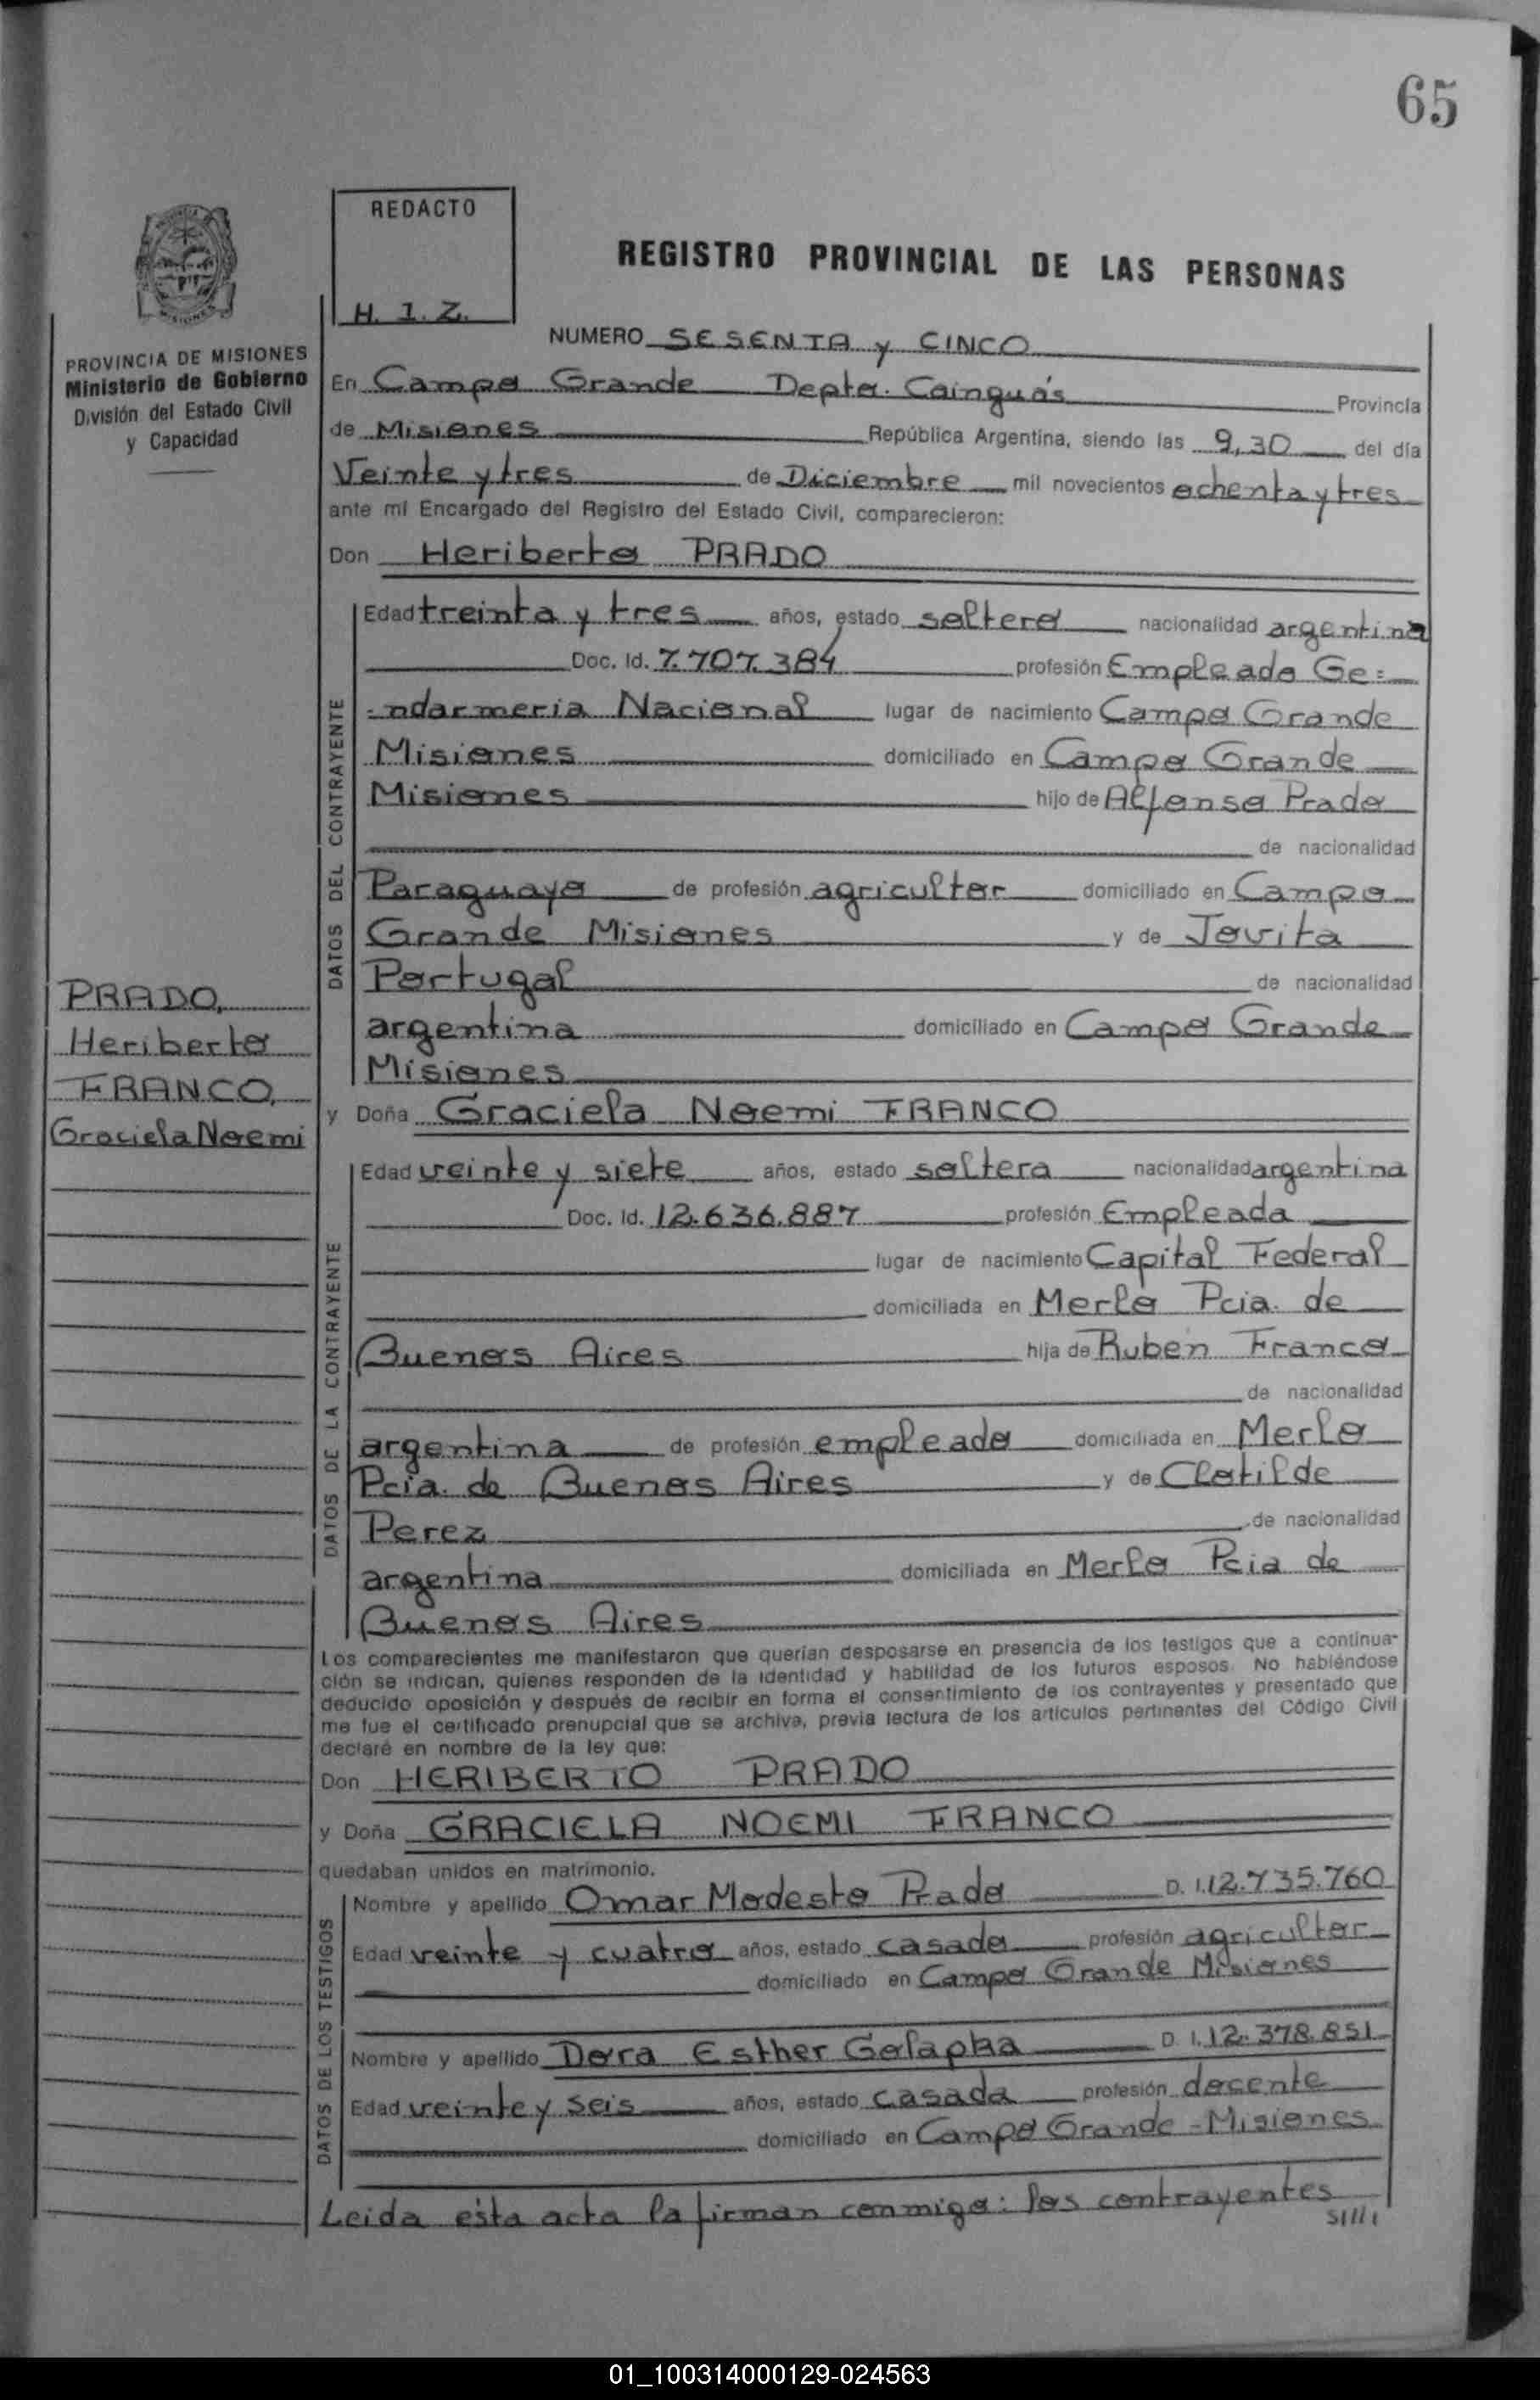 65
REDACTO
H. I. Z.
REGISTRO PROVINCIAL DE LAS PERSONAS
PROVINCIA DE MISIONES
Ministerio de Gobierno
División del Estado Civil
y Capacidad
NUMERO SESENTA y CINCO
En Campo Grande Depto. Cainguás Provincia
de Misiones República Argentina, siendo las 9,30 del día
Veinte y tres de Diciembre mil novecientos ochenta y tres
ante mí Encargado del Registro del Estado Civil, comparecieron:
Don Heriberto PRADO
DATOS DEL CONTRAYENTE
Edad treinta y tres años, estado soltero nacionalidad argentina
Doc. Id. 7.707.384 profesión Empleado Ge=
=ndarmeria Nacional lugar de nacimiento Campo Grande
Misiones domiciliado en Campo Grande
Misiones hijo de Alfonso Prado
de nacionalidad
Paraguaya de profesión agricultor domiciliado en Campo
Grande Misiones y de Jovita
Portugal de nacionalidad
argentina domiciliado en Campo Grande
Misiones
PRADO,
Heriberto
FRANCO,
Graciela Noemi
y Doña Graciela Noemi FRANCO
DATOS DE LA CONTRAYENTE
Edad veinte y siete años, estado soltera nacionalidad argentina
Doc. Id. 12.636.887 profesión Empleada
lugar de nacimiento Capital Federal
domiciliada en Merlo Pcia. de
Buenos Aires hija de Ruben Franco
de nacionalidad
argentina de profesión empleado domiciliada en Merlo
Pcia. de Buenos Aires y de Clotilde
Perez de nacionalidad
argentina domiciliada en Merlo Pcia de
Buenos Aires
Los comparecientes me manifestaron que querían desposarse en presencia de los testigos que a continua-
ción se indican, quienes responden de la identidad y habilidad de los futuros esposos. No habiéndose
deducido oposición y después de recibir en forma el consentimiento de los contrayentes y presentado que
me fue el certificado prenupcial que se archiva, previa lectura de los artículos pertinentes del Código Civil
declaré en nombre de la ley que:
Don HERIBERTO PRADO
y Doña GRACIELA NOEMI FRANCO
quedaban unidos en matrimonio.
DATOS DE LOS TESTIGOS
Nombre y apellido Omar Modesto Prado D. I. 12.735.760
Edad veinte y cuatro años, estado casado profesión agricultor
domiciliado en Campo Grande Misiones
Nombre y apellido Dora Esther Golapka D. I. 12.378.851
Edad veinte y seis años, estado casada profesión docente
domiciliado en Campo Grande - Misiones
Leida ésta acta la firman conmigo: los contrayentes
01_100314000129-024563